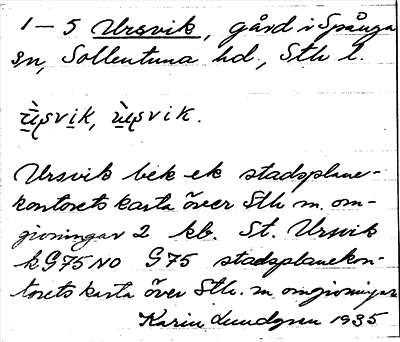 1 – 5 Ursvik, gård i Spånga
sn, Sollentuna hd., Sth l.
ùsvik, ùsvik.
Ursvik bek ek stadsplane-
kontorets karta över Sth m. om-
givningar 2 kb. St. Ursvik
kG75NO G75 stadsplanekon-
torets karta över Sth. m omgivningar
Karin Lundgren 1935